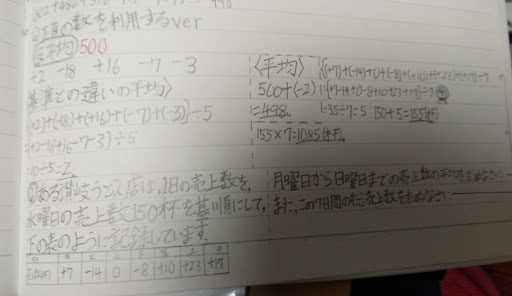 正負の数を利用するver
仮平均 500
+2 -18 +16 -7 -3
基準との違いの平均〉
{(+2)+(-18)+(+16)+(-7)+(-3)}÷5
-10÷5=-2
〈平均〉
500+(-2)
=498
{(+7)+(-14)+0+(-8)+(+10)+(+23)+(+17)}÷7
{+7-14+0-8+10+23+17}÷7
=35÷7=5 150+5=155(杯)
155×7=1085(杯)
ある讃岐うどん店は、1日の売上数を、
水曜日の売上数150杯を基準にして、
下の表のように記録しています。
月曜日から日曜日までの売上数の平均を求めなさい。
また、この7日間の総売上数を求めなさい。
+7 -14 0 -8 +10 +23 +17